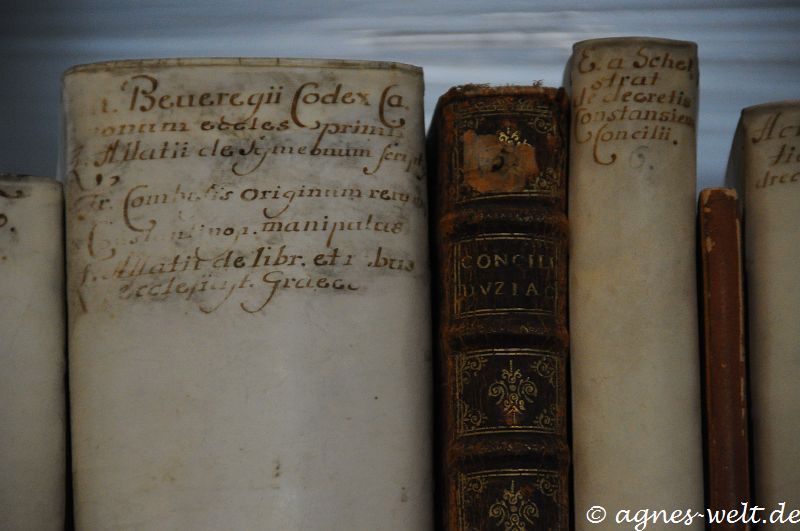 Beueregii Codex Ca
onum eccles primi
Allatii de Symeonum script
Fr. Combefis originum rerum
Constantinop. manipulus
Allatii de libr. et r bus
ecclesiast. Graec
CONCILI
DVZIAC
E. a Schel
strat
de decretis
Constansien
Concilii.
6.
Ac
tio
drec
© agnes-welt.de